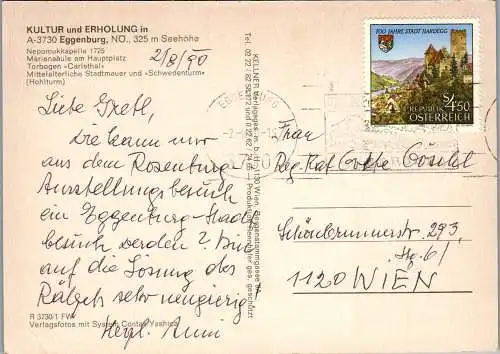 KULTUR und ERHOLUNG in
A-3730 Eggenburg, NÖ., 325 m Seehöhe
Nepomukkapelle 1725
Mariensäule am Hauptplatz
Torbogen «Carlsthal»
Mittelalterliche Stadtmauer und «Schwedenturm»
(Hohlturm)
2/8/90
Liebe Gretl,
Wie kann nur
aus dem Rosenburg
Ausstellungsbesuch
ein Eggenburg-Stadt
besuch werden? Bin
auf die Lösung des
Rätsels sehr neugierig
Herzl. Anni
R 3730/1 FW
Verlagsfotos mit System Contax/Yashica
KELLNER Verlagsges. m. b. H., 1130 Wien,
Tel. 02 22 / 82 58372 und 0 22 62 / 24
Produktion
ges. geschützt
700 JAHRE STADT HARDEGG
S 4.50
REPUBLIK
ÖSTERREICH
EGGENBURG
3730
Frau
Reg. Rat
Schönbrunnerstr. 293,
Stg. 6/
1120 WIEN